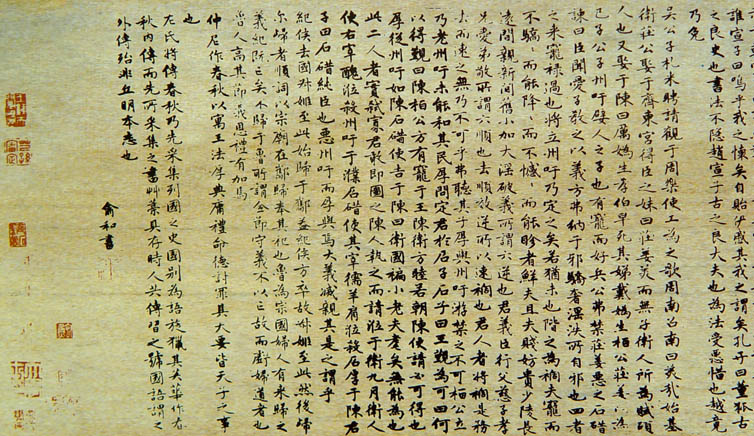 誰宣子曰嗚乎我之懷矣自貽伊慼其我之謂矣孔子曰董狐古
之良史也書法不隱趙宣子古之良大夫也為法受惡惜也越竟
乃免
吳公子札来聘請觀于周樂使工為之歌周南召南曰美哉始基
衛莊公娶于齊東宮得臣之妹曰莊姜美而無子衛人所為賦碩
人也又娶于陳曰厲媯生孝伯早死其娣戴媯生桓公莊姜以為
己子公子州吁嬖人之子也有寵而好兵公弗禁莊姜惡之石碏
諫曰臣聞愛子教之以義方弗納于邪驕奢淫泆所自邪也四者
之来寵祿過也將立州吁乃定之矣若猶未也階之為禍夫寵而
不驕〻而能降〻而不憾〻而能眕者鮮矣且夫賤妨貴少陵長
遠間親新間舊小加大淫破義所謂六逆也君義臣行父慈子孝
兄愛弟敬所謂六順也去順效逆所以速禍也君人者將禍是務
去而速之無乃不可乎弗聽其子厚與州吁游禁之不可桓公立
乃老州吁未能和其民厚問定君於石子石子曰王覲為可曰何
以得覲曰陳桓公方有寵于王陳衛方睦若朝陳使請必可得也
厚從州吁如陳石碏使告于陳曰衛國褊小老夫耄矣無能為也
此二人者實弒寡君敢即圖之陳人執之而請涖于衛九月衛人
使右宰醜涖殺州吁于濮石碏使其宰獳羊肩涖殺石厚于陳君
子曰石碏純臣也惡州吁而厚與焉大義滅親其是之謂乎
紀侯去國叔姬至此始歸于酅蓋紀侯方卒故叔姬至此然後歸
尔歸者順詞以宗廟在酅歸奉其祀也魯為宗國婦人有来歸之
義紀既亡矣不歸于魯所謂全節守義不以亡故而虧婦道者也
人高其節義恩禮有加焉
仲尼作春秋以寓王法厚典庸禮命德討罪其大要皆天子之事
也
左氏將傳春秋乃先采集列國之史國別為語旋獵其英華作春
秋內傳而先所采集之書草藁具存時人共傳習之號國語謂之
外傳殆非丘明本志也
俞和書